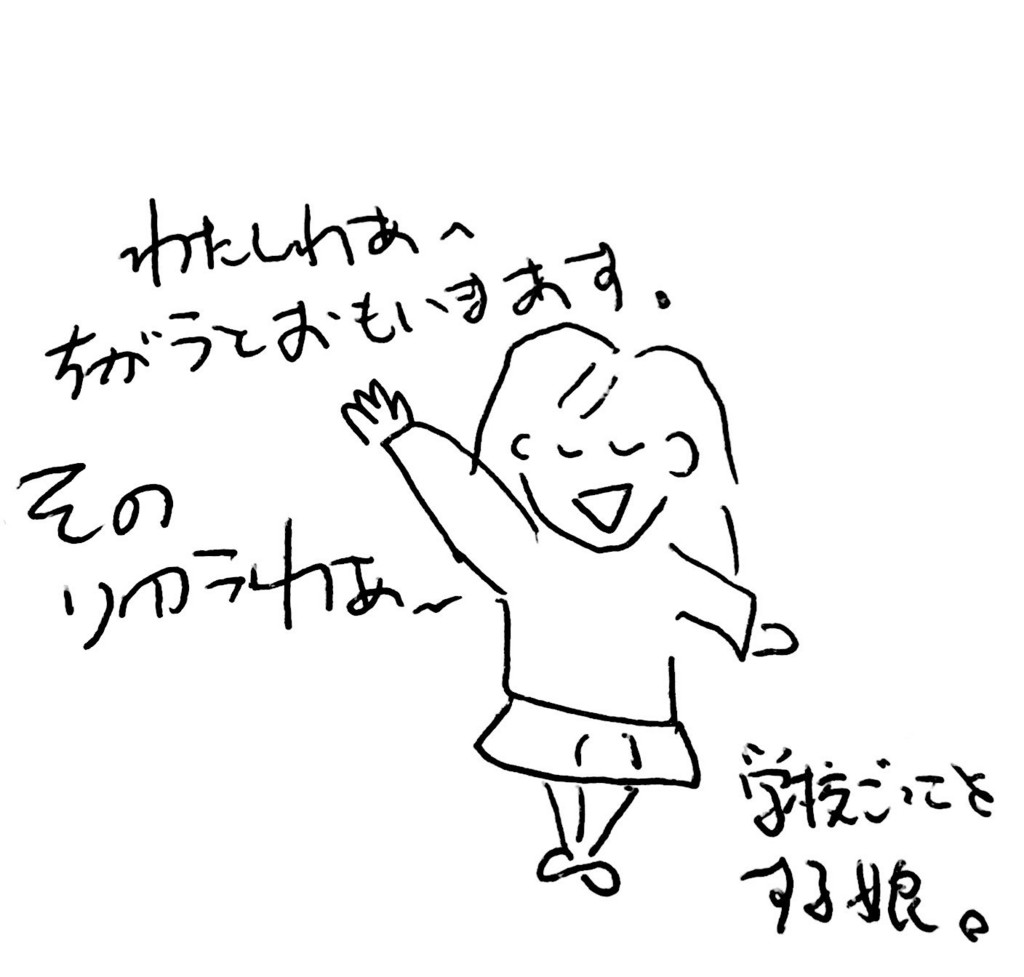 わたしわぁ〜
ちがうとおもいまあす。
その
りゆうわぁ〜
学校ごっこを
する娘。